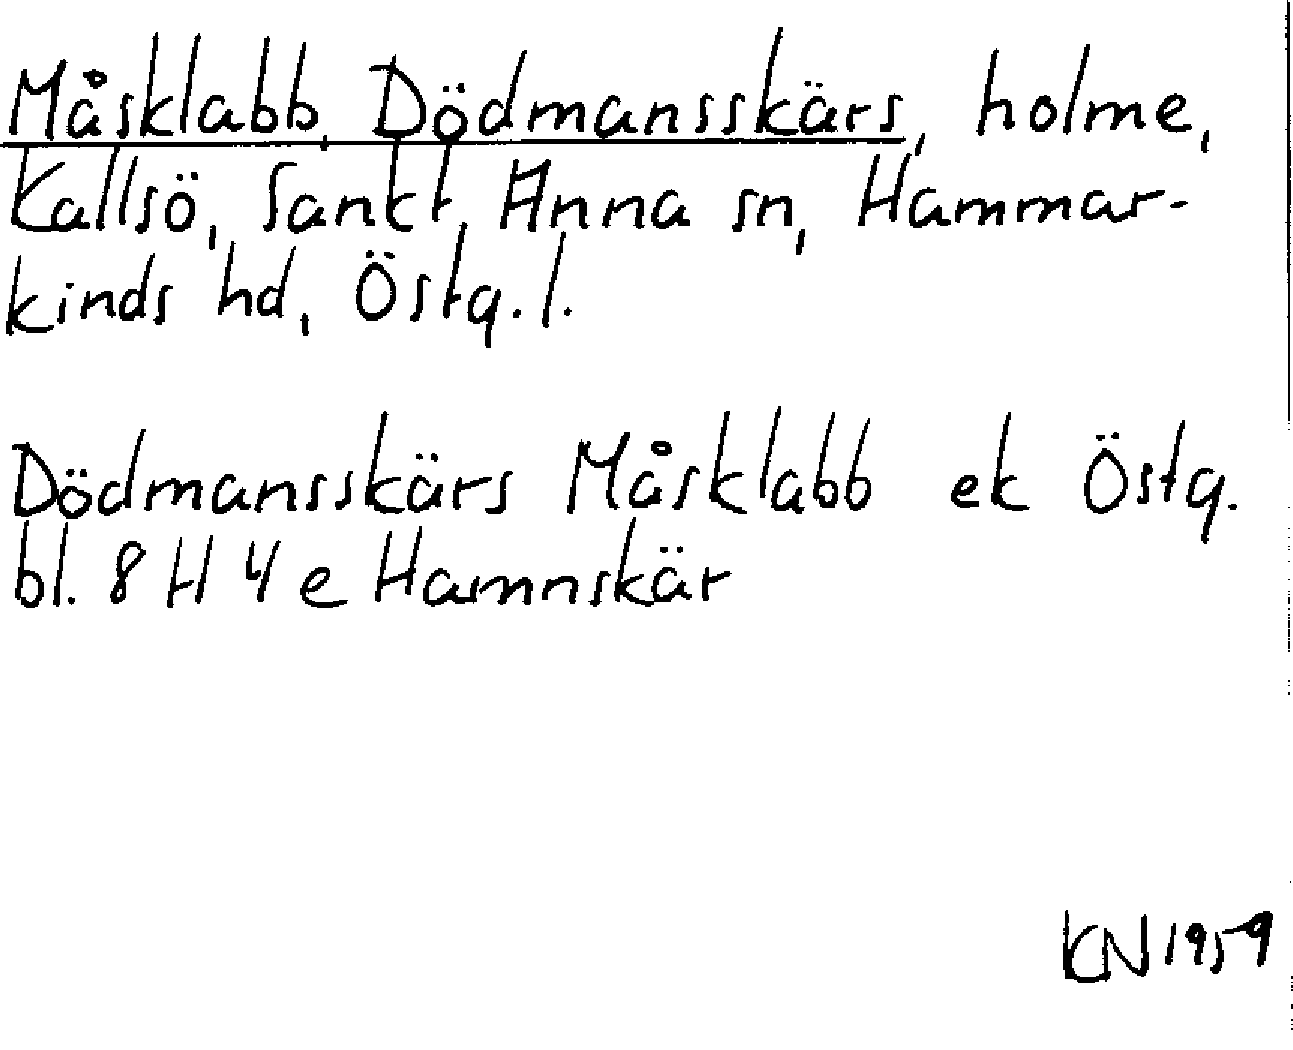 Måsklabb, Dödmansskärs, holme,
Kallsö, Sankt Anna sn, Hammar-
kinds hd, Östg. l.
Dödmansskärs Måsklabb ek Östg.
bl. 8 H 4 e Hamnskär
KN 1959